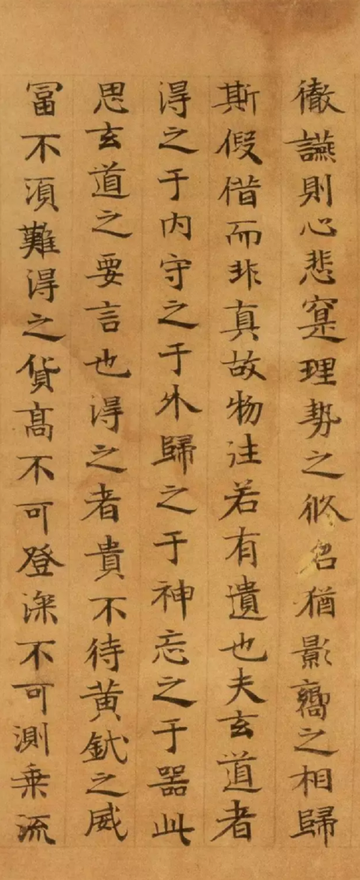 徹讌則心悲寔理勢之攸召猶影響之相歸
斯假借而非真故物往若有遺也夫玄道者
得之于内守之于外歸之于神忘之于器此
思玄道之要言也得之者貴不待黄鉞之威
冨不湏難得之貨髙不可登深不可測乗流